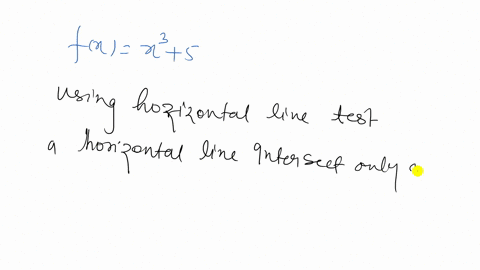 f(x) = x³+5
using horizontal line test
a horizontal line intersect only